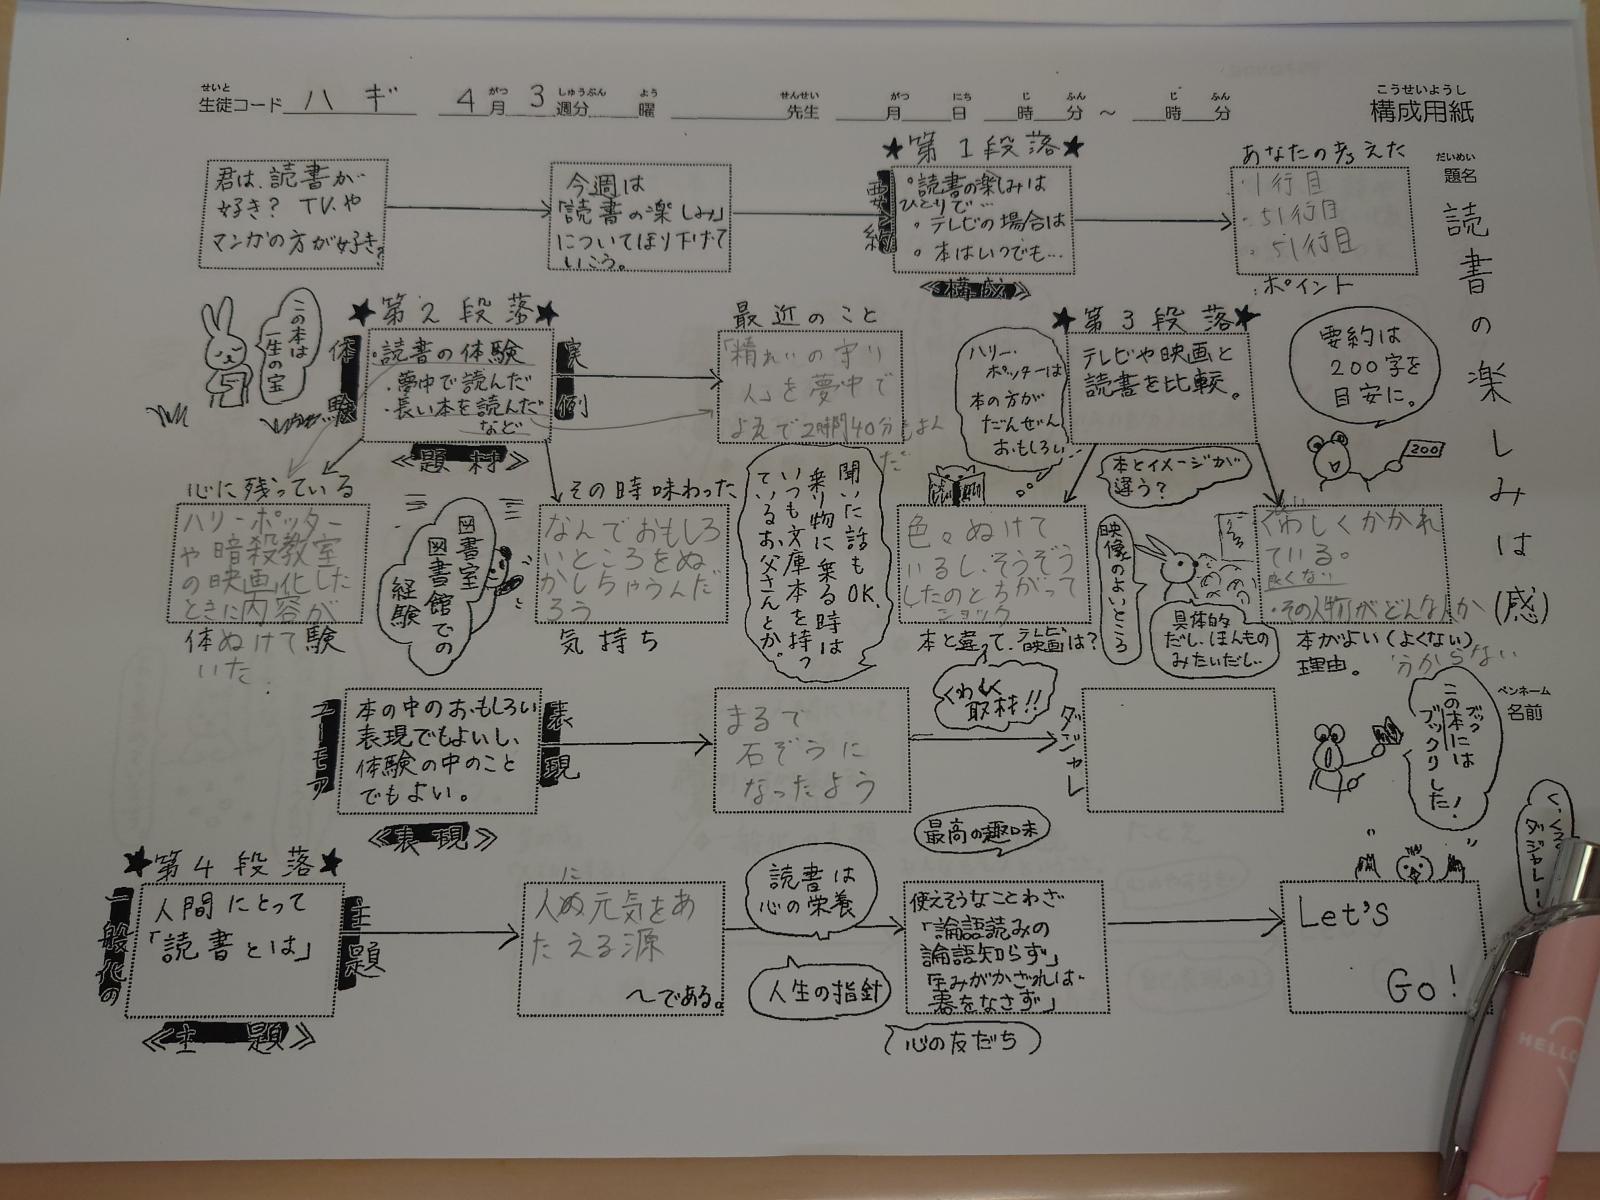 せいと がつ しゅうぶん よう せんせい がつ にち じ ふん じ ふん こうせいようし
生徒コード ハギ 4月 3週分 曜 先生 月 日 時 分 ～ 時 分 構成用紙
だいめい
題名
読書の楽しみは(感)
君は、読書が
好き? TVや
マンガの方が好き?
今週は
「読書の楽しみ」
についてほり下げて
いこう。
★第1段落★
要約
・読書の楽しみは
ひとりで…
・テレビの場合は
・本はいつでも…
≪構成≫
あなたの考えた
・1行目
・51行目
・51行目
ポイント
この本は
一生の宝
★第2段落★
体験
・読書の体験
・夢中で読んだ
・長い本を読んだ
など
実例
≪題材≫
最近のこと
「精れいの守り
人」を夢中で
よんで2時間40分
ハリー・
ポッターは
本の方が
だんぜん
おもしろい…
★第3段落★
テレビや映画と
読書を比較。
要約は
200字を
目安に。
200
心に残っている
ハリーポッター
や暗殺教室
の映画化した
ときに内容が
ぬけて
いた。
体験
図書室
図書館での
経験
その時味わった
なんでおもしろ
いところをぬ
かしちゃうんだ
ろう
気持ち
聞いた話もOK.
乗り物に乗る時は
いつも文庫本を持っ
ているお父さんとか。
色々ぬけて
いるし、そうぞう
したのとちがって
ショック
本と違って、テレビ映画は?
本とイメージが
違う?
映像のよいところ
具体的
だし、ほんもの
みたいだし
くわしくかかれ
ている。
良くない
・その人物がどんな人か
分からない
本がよい(よくない)
理由。
ユーモア
本の中のおもしろい
表現でもよいし、
体験の中のこと
でもよい。
表現
≪表現≫
まるで
石ぞうに
なったよう
くわしく
取材!!
ダジャレ
この本には
ブック
ブックリした!
ペンネーム
名前
ダジャレー!
★第4段落★
一般化の
人間にとって
「読書とは」
主題
≪主題≫
人に元気をあ
たえる源
～である。
読書は
心の栄養
人生の指針
最高の趣味
使えそうなことわざ
「論語読みの
論語知らず」
玉みがかざれば
器をなさず」
心の友だち
Let's
Go!
HELLO